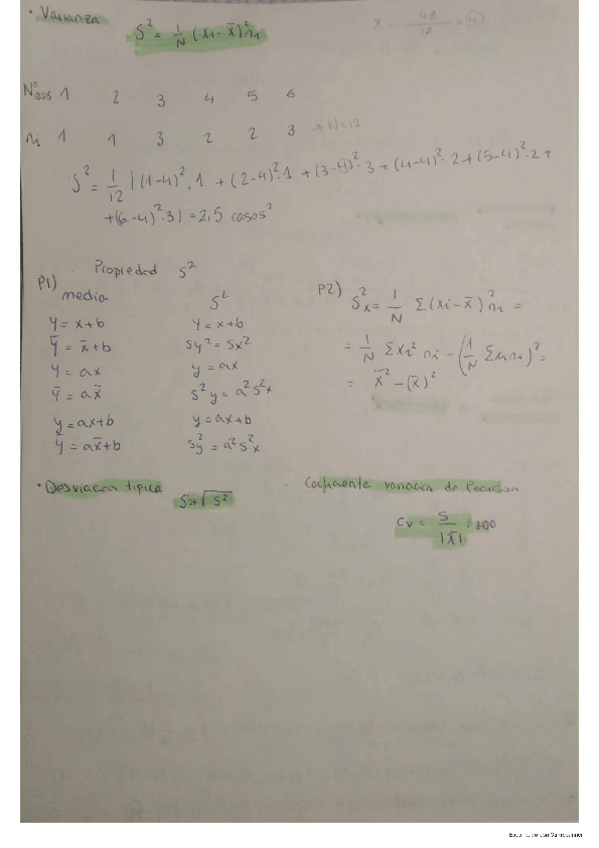 • Varianza
S² = 1/N (xi - x̄)² ni
x̄ = 48/12 = 4
Nº casos 1 2 3 4 5 6
ni 1 1 3 2 2 3 → N=12
S² = 1/12 [(1-4)²·1 + (2-4)²·1 + (3-4)²·3 + (4-4)²·2 + (5-4)²·2 +
+(6-4)²·3) = 2,5 casos²
Propiedad S²
P1)
media S²
y = x+b y = x+b
ȳ = x̄+b sy² = sx²
y = ax y = ax
ȳ = ax̄ s²y = a²s²x
y = ax+b y = ax+b
ȳ = ax̄+b sy² = a²s²x
P2) S²x = 1/N Σ(xi - x̄)² ni =
= 1/N Σxi² ni - (1/N Σxini)² =
= x̄² - (x̄)²
• Desviación típica
S = +√S²
· Coeficiente variación de Pearson
Cv = S/|x̄| · 100